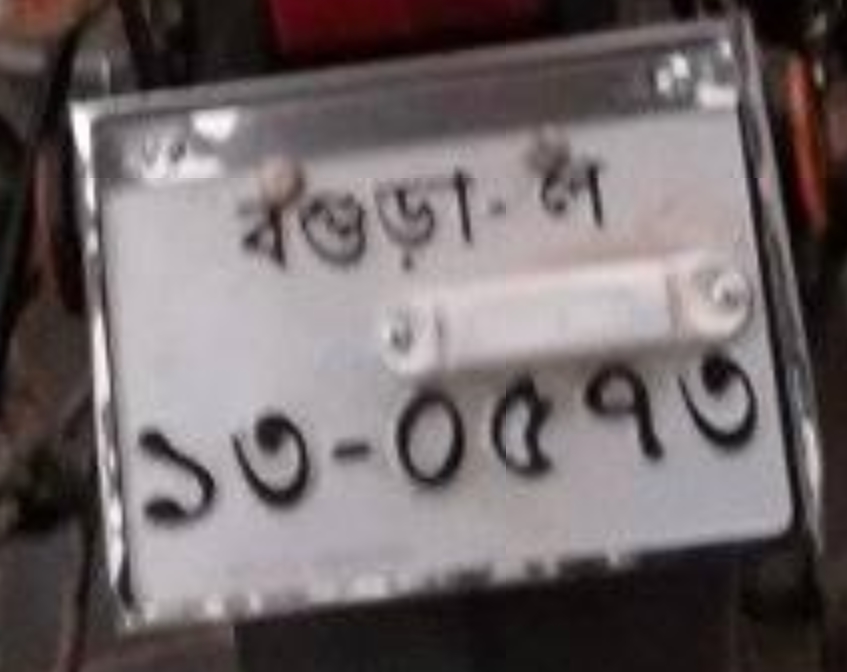 বগুড়া-ল
১৩-০৫৭৩